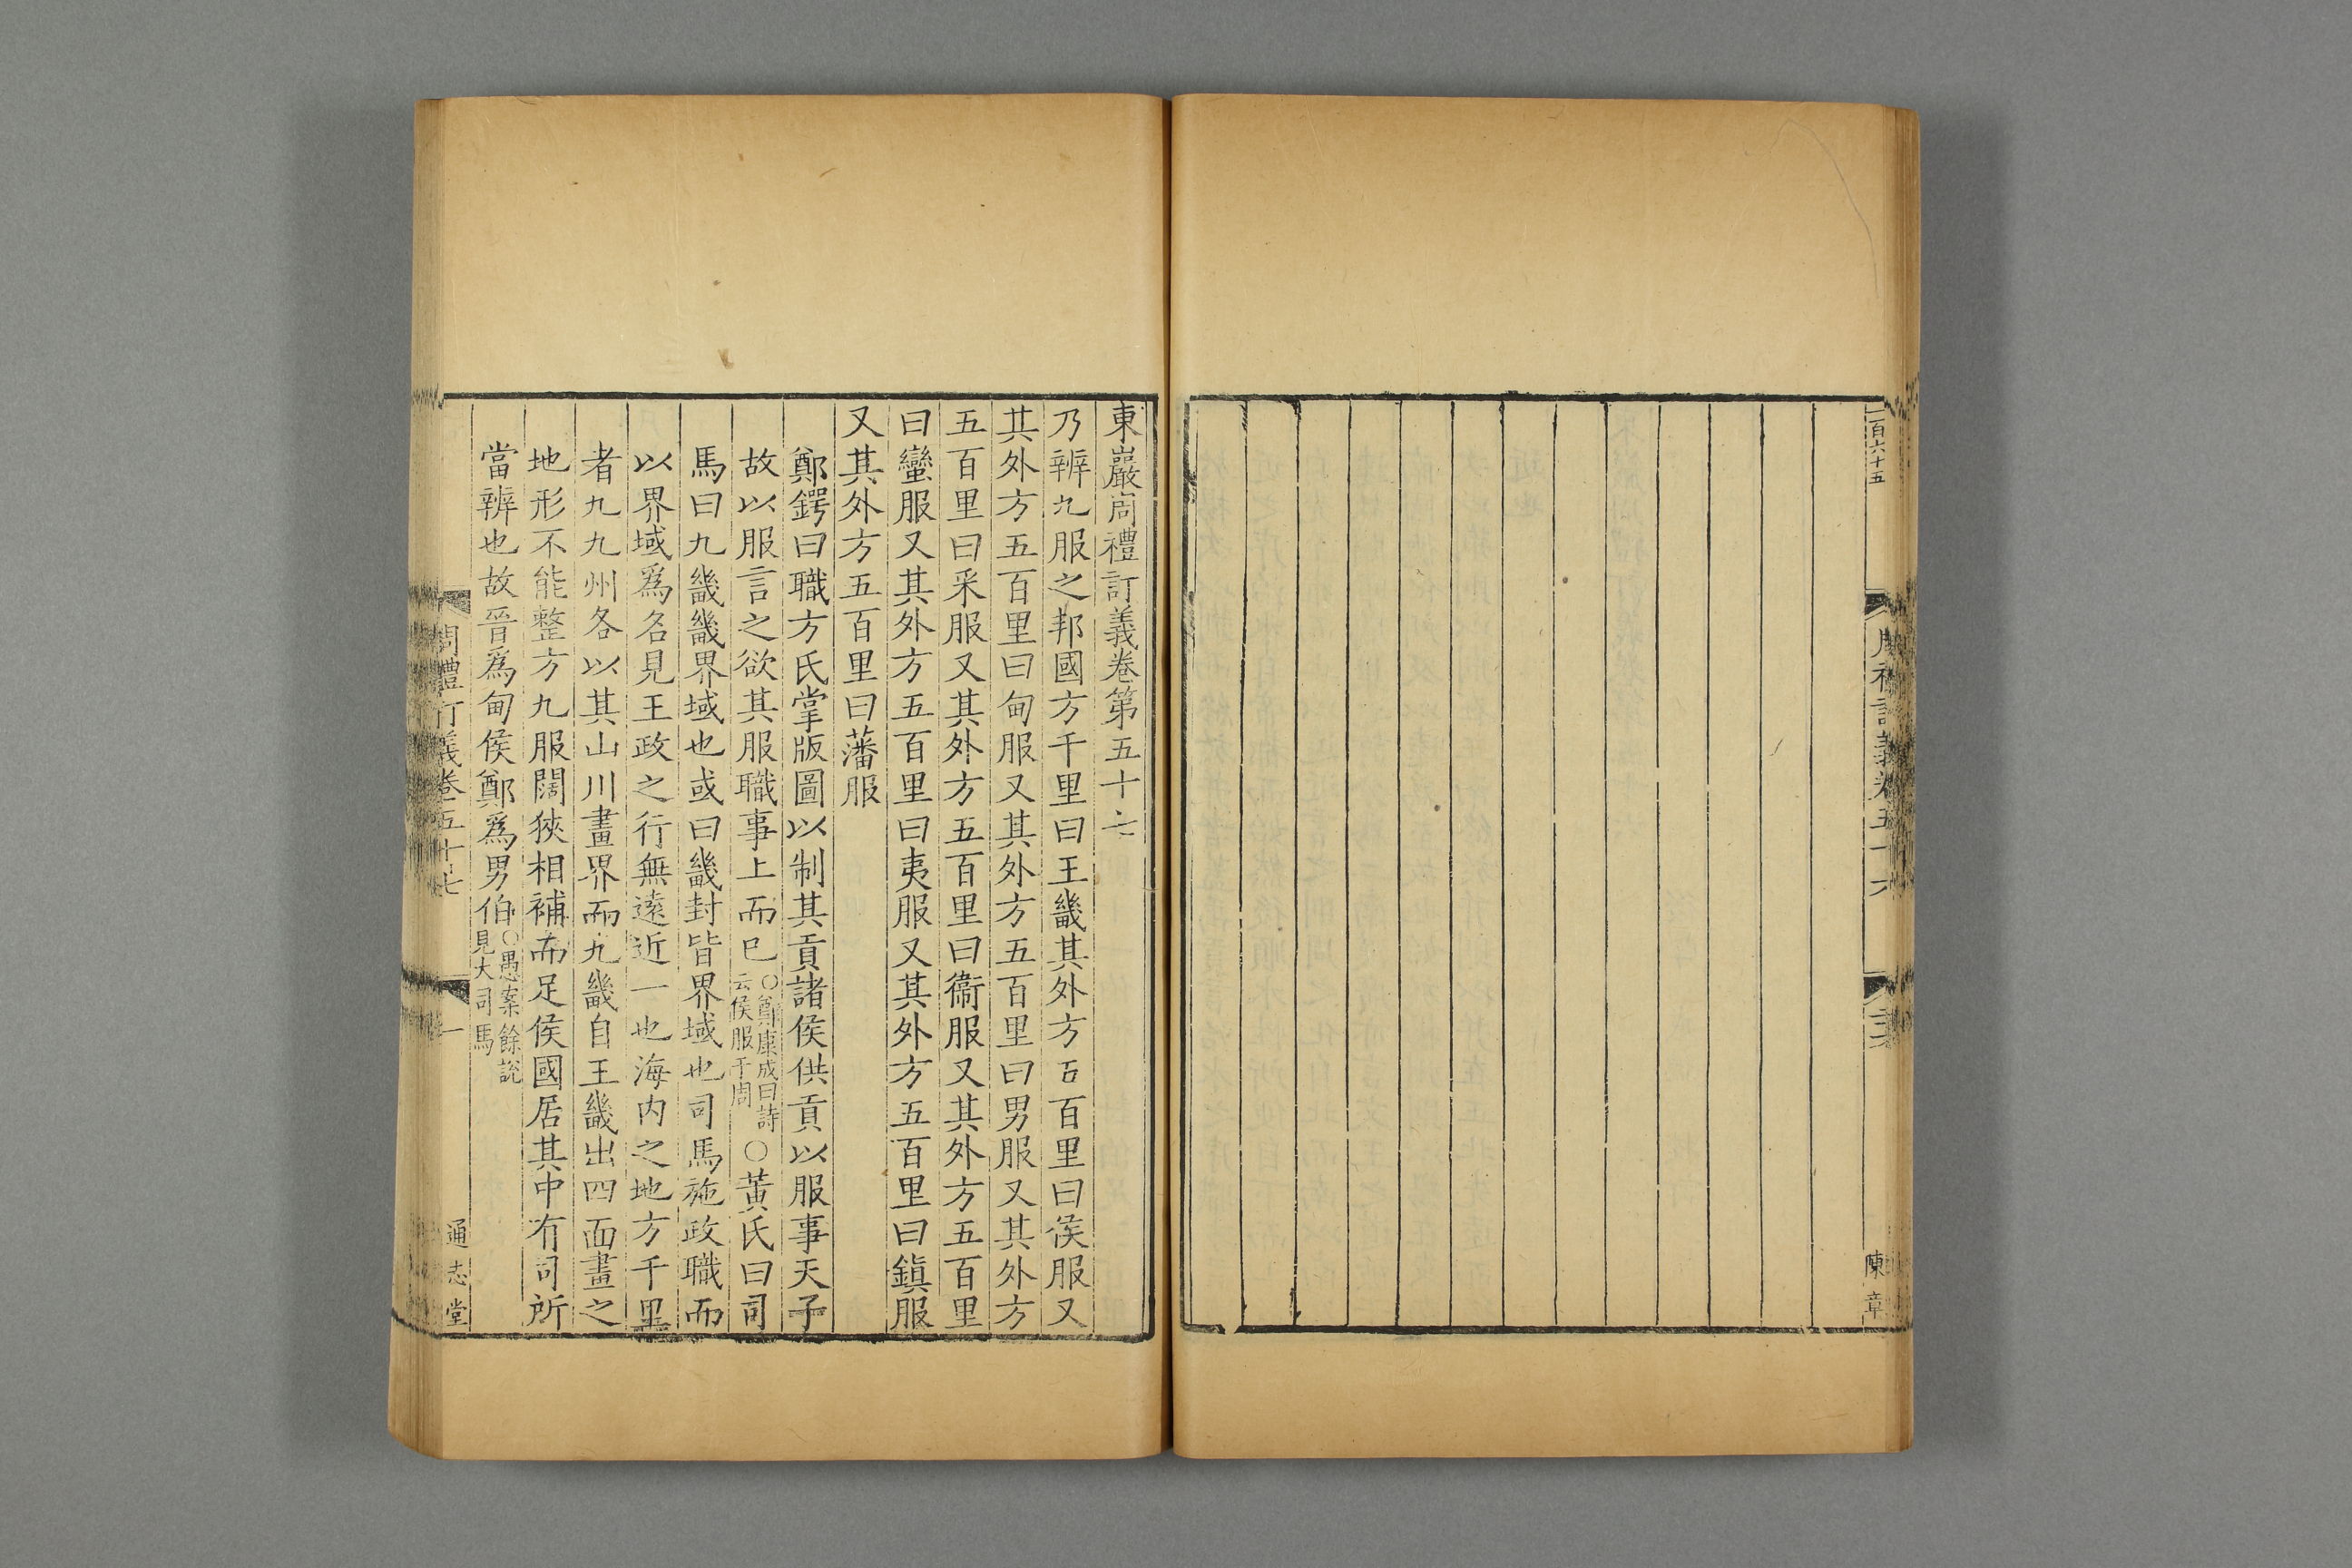 二百六十五
周禮訂義卷五十六
陳章
東巖周禮訂義卷第五十七
乃辨九服之邦國方千里曰王畿其外方五百里曰侯服又
其外方五百里曰甸服又其外方五百里曰男服又其外方
五百里曰采服又其外方五百里曰衞服又其外方五百里
曰蠻服又其外方五百里曰夷服又其外方五百里曰鎮服
又其外方五百里曰藩服
鄭鍔曰職方氏掌版圖以制其貢諸侯供貢以服事天子
故以服言之欲其服職事上而已○鄭康成曰詩云侯服于周○黃氏曰司
馬曰九畿畿界域也或曰畿封皆界域也司馬施政職而
以界域爲名見王政之行無遠近一也海内之地方千里
者九九州各以其山川畫界而九畿自王畿出四面畫之
地形不能整方九服闊狹相補而足侯國居其中有司所
當辨也故晉爲甸侯鄭爲男伯○愚案餘説見大司馬
周禮訂義卷五十七
一
通志堂